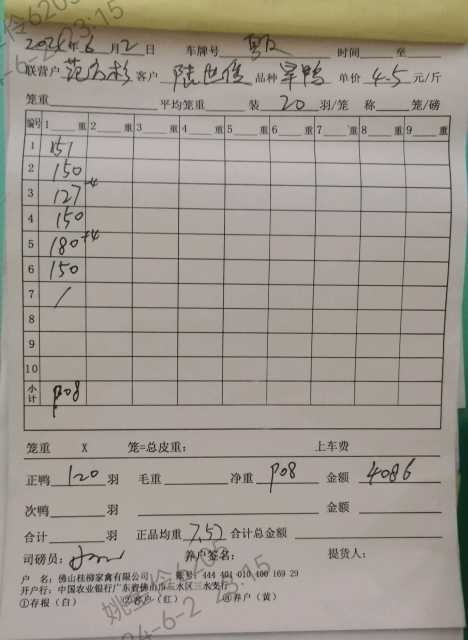 2024年6月2日 车牌号 粤 时间 至
联营户 范 彩 客户 陆世俊 品种 旱鸭 单价 4.5 元/斤
笼重 平均笼重 装 20 羽/笼 称 笼/磅
编号 1 重 2 重 3 重 4 重 5 重 6 重 7 重 8 重 9 重
1 151
2 150
3 127 -4
4 150
5 180 +4
6 150
7 /
8
9
10
小计 908
笼重 X 笼=总皮重: 上车费
正鸭 120 羽 毛重 净重 908 金额 4086
次鸭 羽 金额
合计 羽 正品均重 7.57 合计总金额
司磅员: 养户签名: 提货人:
户 名: 佛山桂柳家禽有限公司 账号: 444 401 010 400 169 29
开户行: 中国农业银行广东省佛山市三水区三水支行
①存根(白) ②客户(红) ③养户(黄)